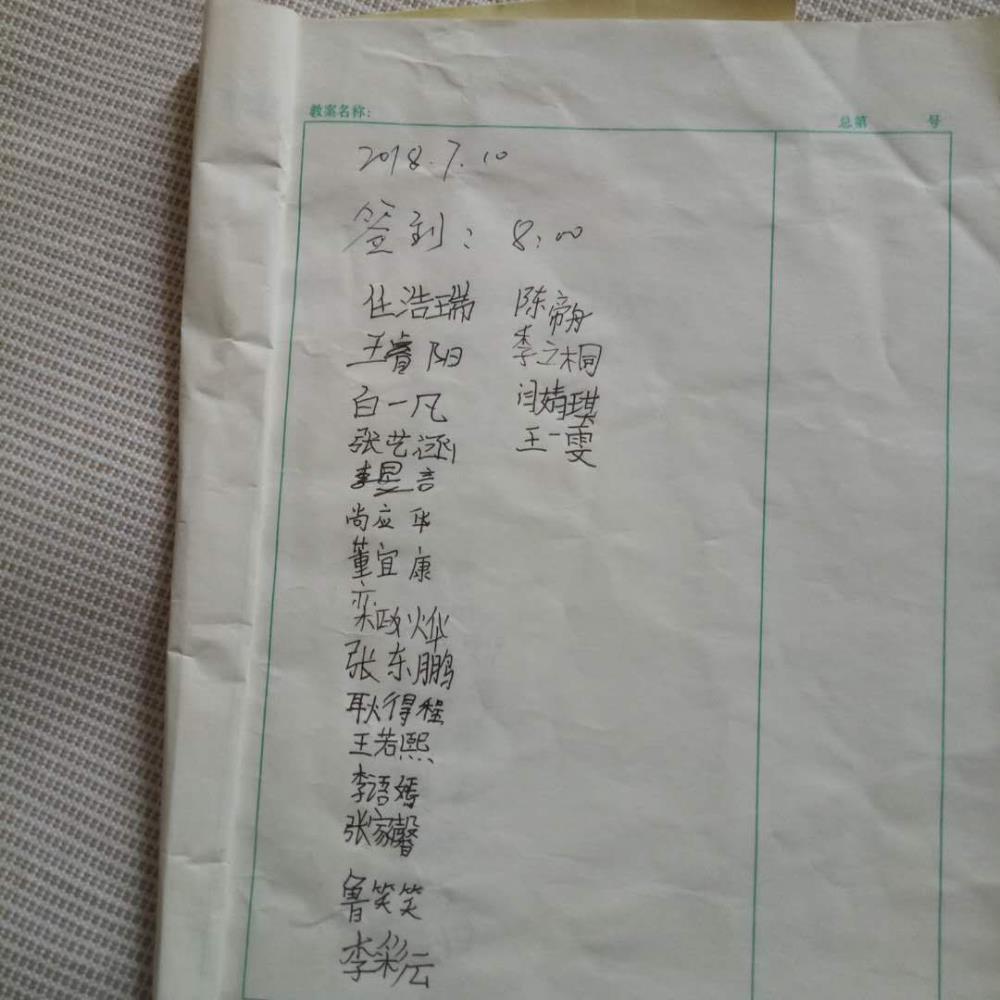 教案名称:
总第 号
2018.7.10
签到: 8:00
任浩瑞 陈帝舟
王睿阳 李立桐
白一凡 闫婧琪
张艺涵 王一雯
李昱言
尚应华
董宜康
栾政烨
张东鹏
耿得程
王若熙
李语嫣
张家馨
鲁笑笑
李彩云